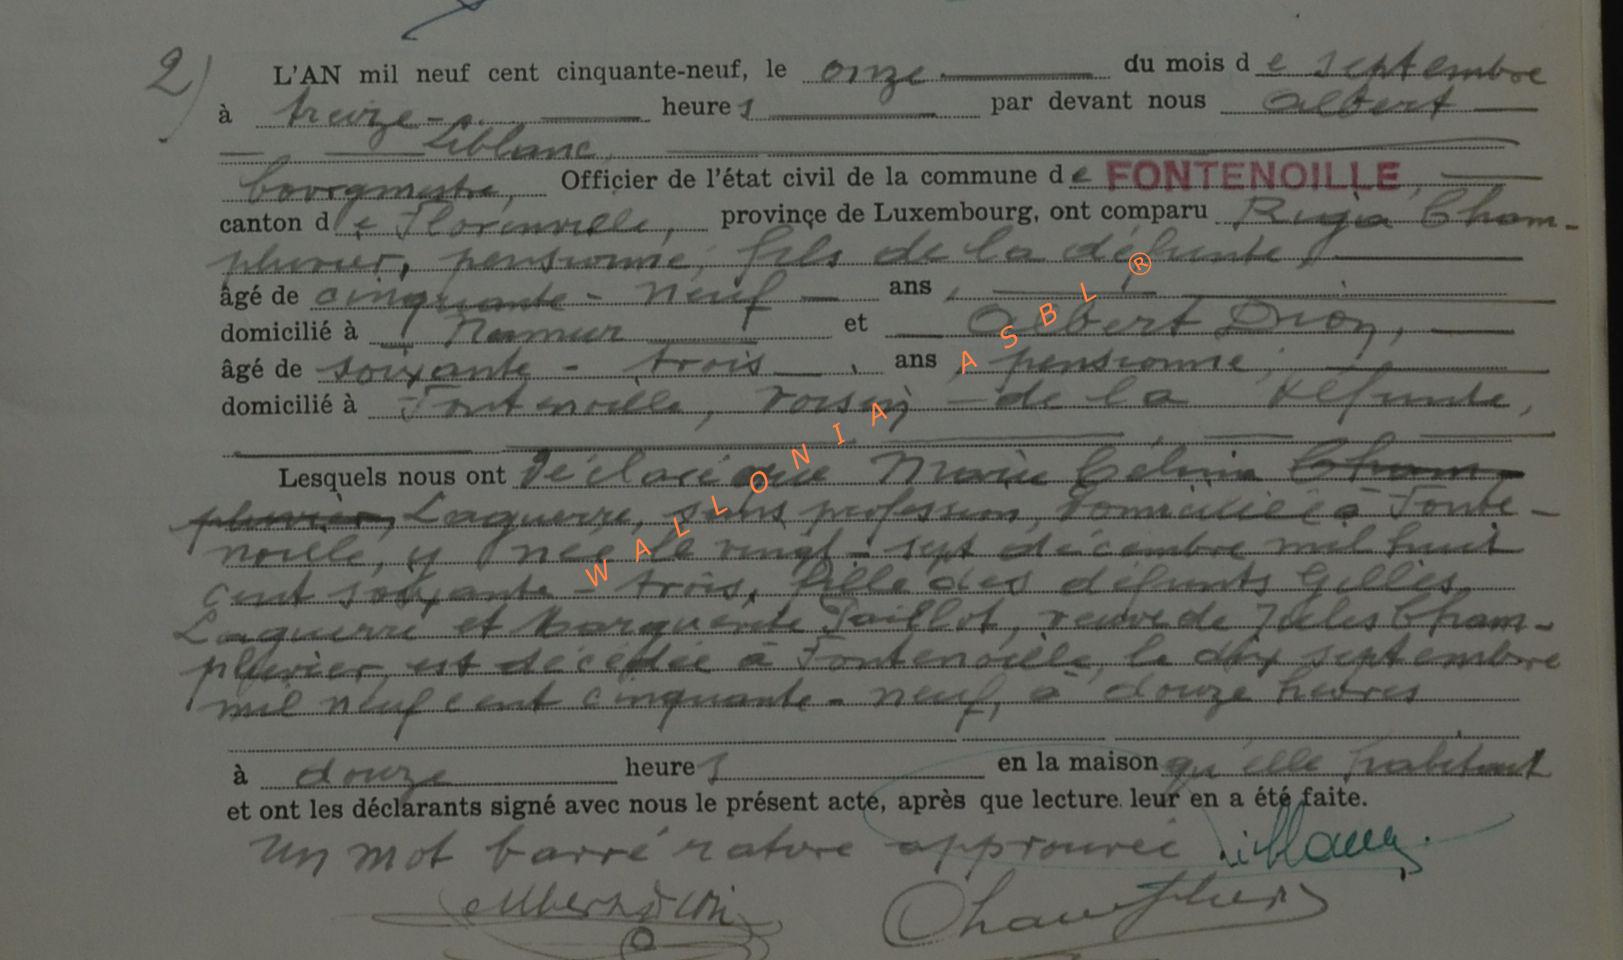 2) L'AN mil neuf cent cinquante-neuf, le onze du mois de septembre
à treize heures par devant nous Albert
Liblanc,
bourgmestre, Officier de l'état civil de la commune de FONTENOILLE,
canton de Florenville, province de Luxembourg, ont comparu Cham-
pluvier, pensionné, fils de la défunte,
âgé de cinquante-neuf ans,
domicilié à Namur et Albert Dion,
âgé de soixante-trois, ans pensionné,
domicilié à Fontenoille, voisin de la défunte,
Lesquels nous ont déclaré que Marie Célinie Cham-
pluvier, Laguerre, sans profession, domiciliée à Fonte-
noille, y née le vingt-sept décembre mil huit
cent soixante-trois, fille des défunts Gilles
Laguerre et Marguerite Paillot, veuve de Jules Cham-
pluvier, est décédée à Fontenoille, le dix septembre
mil neuf cent cinquante-neuf, à douze heures
à douze heures en la maison qu'elle habitait
et ont les déclarants signé avec nous le présent acte, après que lecture leur en a été faite.
Un mot barré rature approuvée Liblanc
Albert Dion Champluvier
WALLONIA ASBL ®